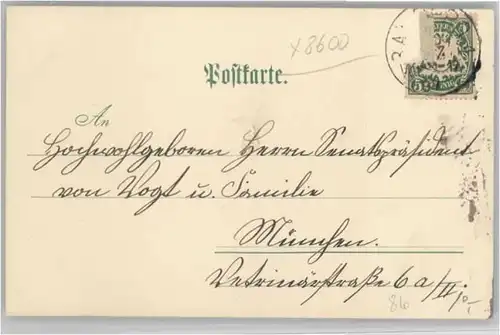 x8600
Postkarte.
An
Hochwohlgeboren Herrn Senatspräsident
von Vogt u. Familie
München.
Vetrinärstraße 6a/II
86